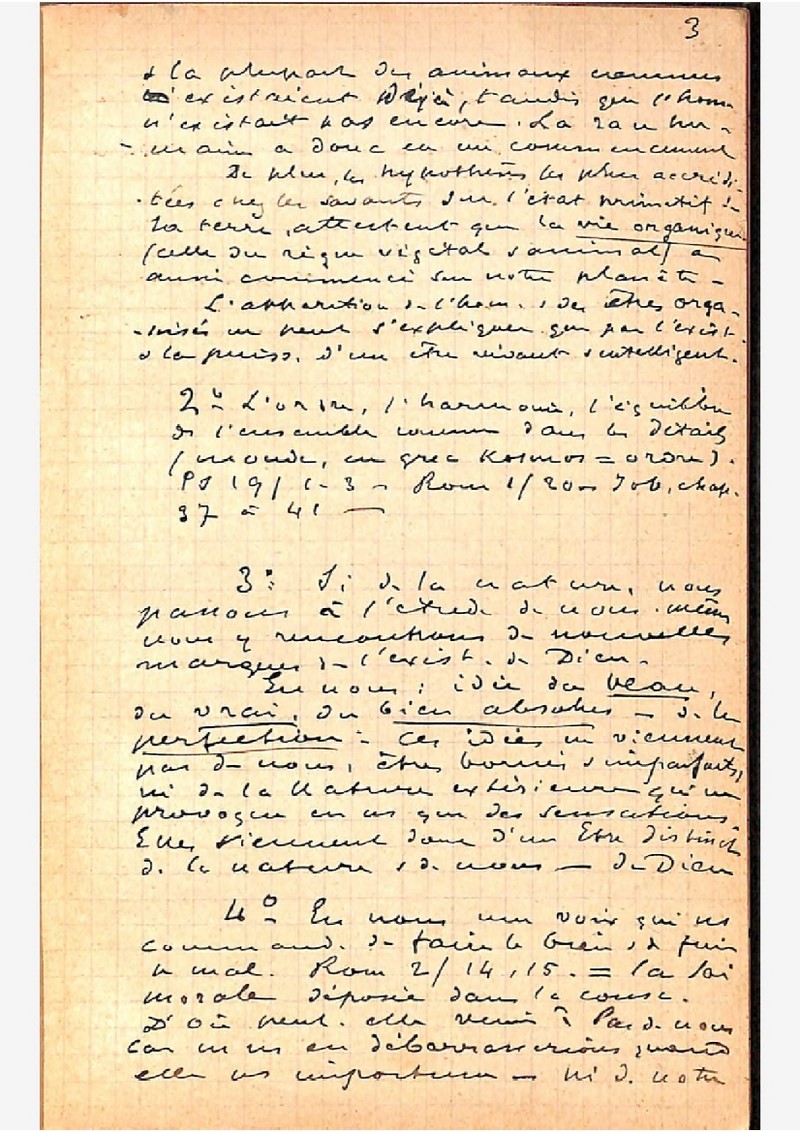 3
& la plupart des animaux connus
n'existaient déjà, tandis que l'hom.
n'existait pas encore. La race hu-
-maine a donc eu un commencement
De plus, les hypothèses les plus accrédi-
-tées chez les savants sur l'état primitif de
la terre, attestent que la vie organique
(celle du règne végétal & animal) a
aussi commencé sur notre planète -
L'apparition de l'hom. & des êtres orga-
-nisés ne peut s'expliquer que par l'exist.
& la puiss. d'un être vivant & intelligent.
2° L'ordre, l'harmonie, l'équilibre
de l'ensemble comme dans les détails
(monde, en grec Kosmos = ordre).
Ps 19/1-3 - Rom 1/20 - Job, chap.
37 à 41 —
3° Si de la nature, nous
passons à l'étude de nous-mêmes
nous y rencontrons de nouvelles
marques de l'exist. de Dieu.
En nous : idée du beau,
du vrai, du bien absolus - de la
perfection - Ces idées ne viennent
pas de nous, êtres bornés & imparfaits,
ni de la Nature extérieure qui ne
provoque en ns que des sensations
Elles viennent donc d'un Être distinct
de la nature & de nous — de Dieu
4° En nous une voix qui ns
command. de faire le bien & de fuir
le mal. Rom 2/14,15. = la loi
morale déposée dans la consc.
D'où peut-elle venir ? Pas de nous
car ns ns en débarrasserions quand
elle ns importune - ni de notre